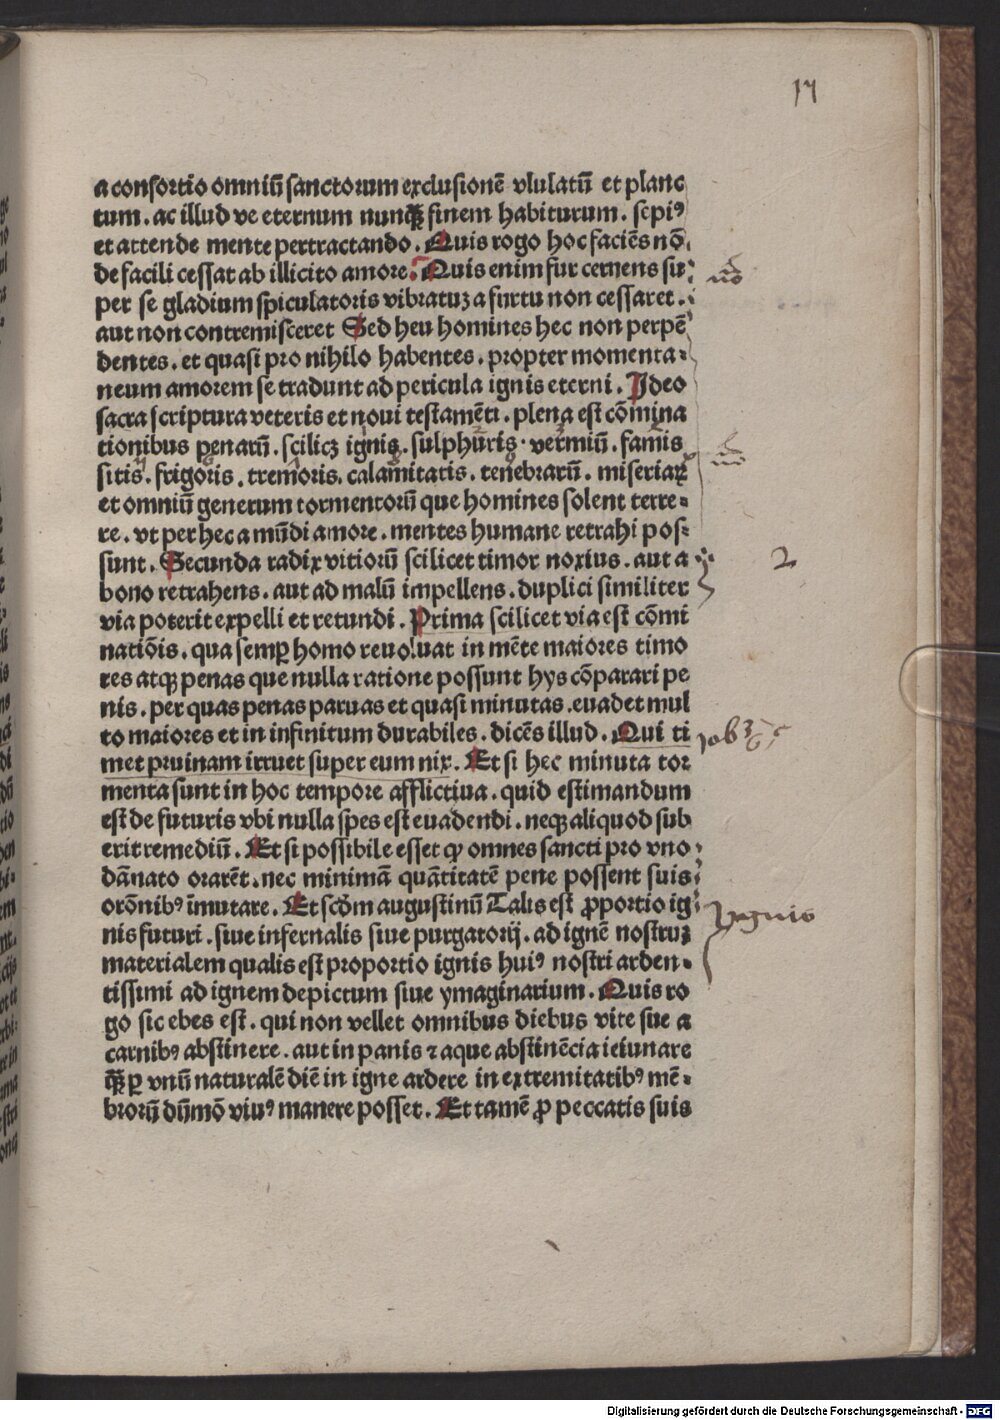 17
a consortio omniū sanctorum exclusionē vlulatū et planc
tum. ac illud ve eternum nunqȝ finem habiturum. sepiꝰ
et attende mente pertractando. Quis rogo hoc faciēs nō
de facili cessat ab illicito amore. Quis enim fur cernens su
per se gladium spiculatoris vibratuȝ a furtu non cessaret.
aut non contremisceret Sed heu homines hec non perpē
dentes. et quasi pro nihilo habentes. propter momenta⸗
neum amorem se tradunt ad pericula ignis eterni. Ideo
sacra scriptura veteris et noui testamēti. plena est cōmina
tionibus penarū. scilicȝ ignis. sulphuris. vermiū. famis
sitis. frigoris. tremoris. calamitatis. tenebrarū. miseriaꝝ
et omniū generum tormentorū que homines solent terre⸗
re. vt per hec a mūdi amore. mentes humane retrahi pos⸗
sunt. Secunda radix vitiorū scilicet timor noxius. aut a
2
bono retrahens. aut ad malū impellens. duplici similiter
via poterit expelli et retundi. Prima scilicet via est cōmi
natiōis. qua semꝑ homo reuoluat in mēte maiores timo
res atqȝ penas que nulla ratione possunt hys cōparari pe
nis. per quas penas paruas et quasi minutas. euadet mul
to maiores et in infinitum durabiles. dicēs illud. Qui ti
met pruinam irruet super eum nix. Et si hec minuta tor
menta sunt in hoc tempore afflictiua. quid estimandum
est de futuris vbi nulla spes est euadendi. neqȝ aliquod sub
erit remediū. Et si possibile esset ꝙ omnes sancti pro vno
dānato orarēt. nec minimā quātitatē pene possent suis
orōnibꝰ īmutare. Et scd̄m augustinū Talis est ꝓportio ig
nis futuri. siue infernalis siue purgatorij. ad ignē nostruȝ
materialem qualis est proportio ignis huiꝰ nostri arden⸗
tissimi ad ignem depictum siue ymaginarium. Quis ro
go sic ebes est. qui non vellet omnibus diebus vite sue a
carnibꝰ abstinere. aut in panis ⁊ aque abstinēcia ieiunare
qȝ ꝑ vnū naturalē diē in igne ardere in extremitatibꝰ mē⸗
brorū dūmō viuꝰ manere posset. Et tamē ꝓ peccatis suis
Digitalisierung gefördert durch die Deutsche Forschungsgemeinschaft - DFG